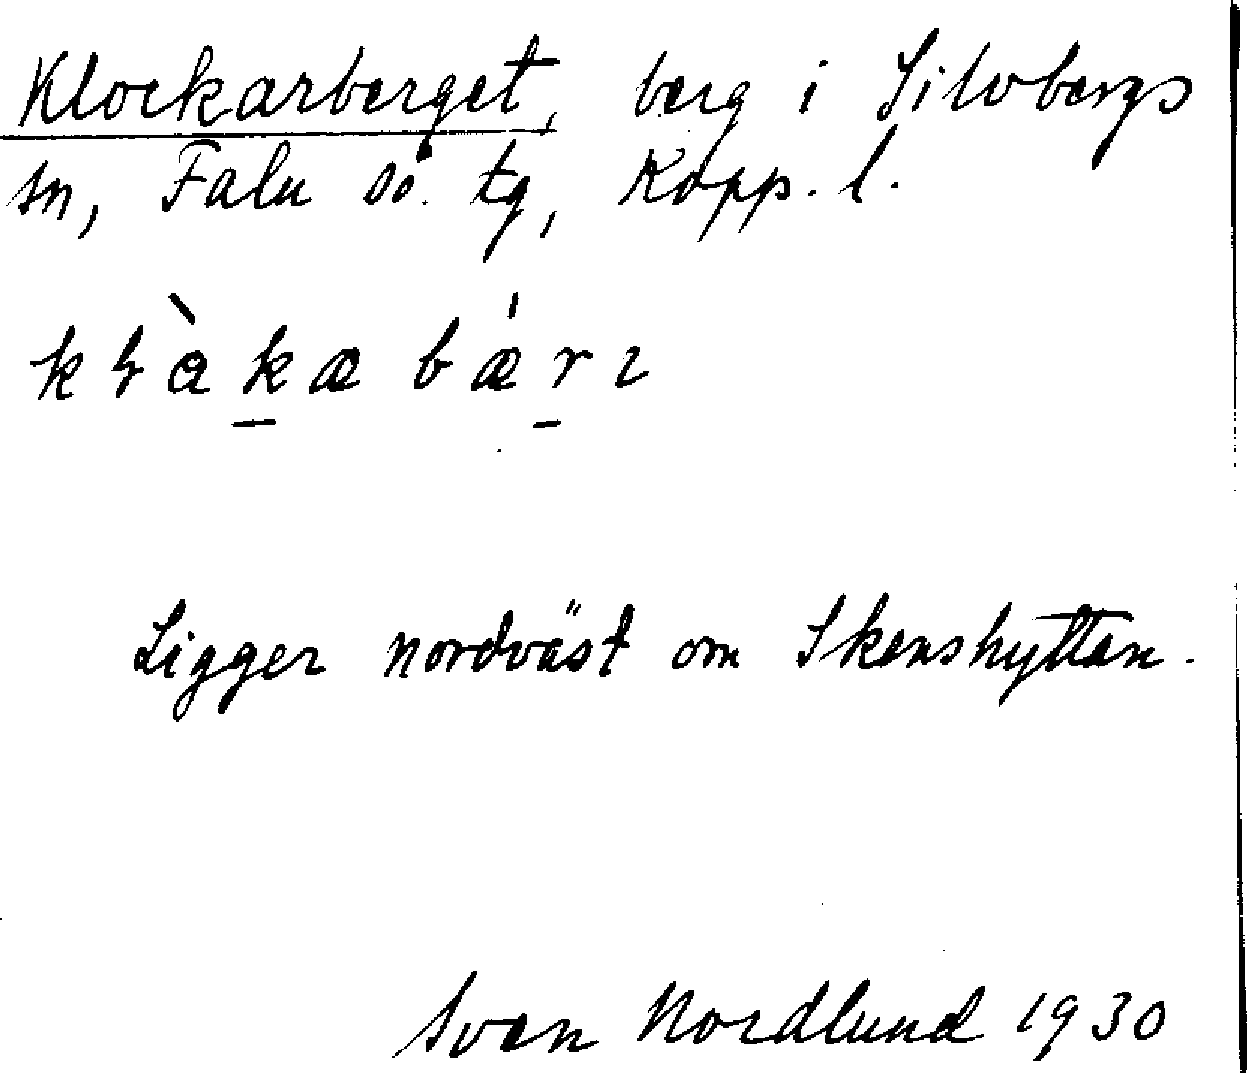 Klockarberget, berg i Silvbergs
sn, Falu sö. tg, Kopp. l.
kɬàkæ bǽrɩ
Ligger nordväst om Skenshyttan.
Sven Nordlund 1930